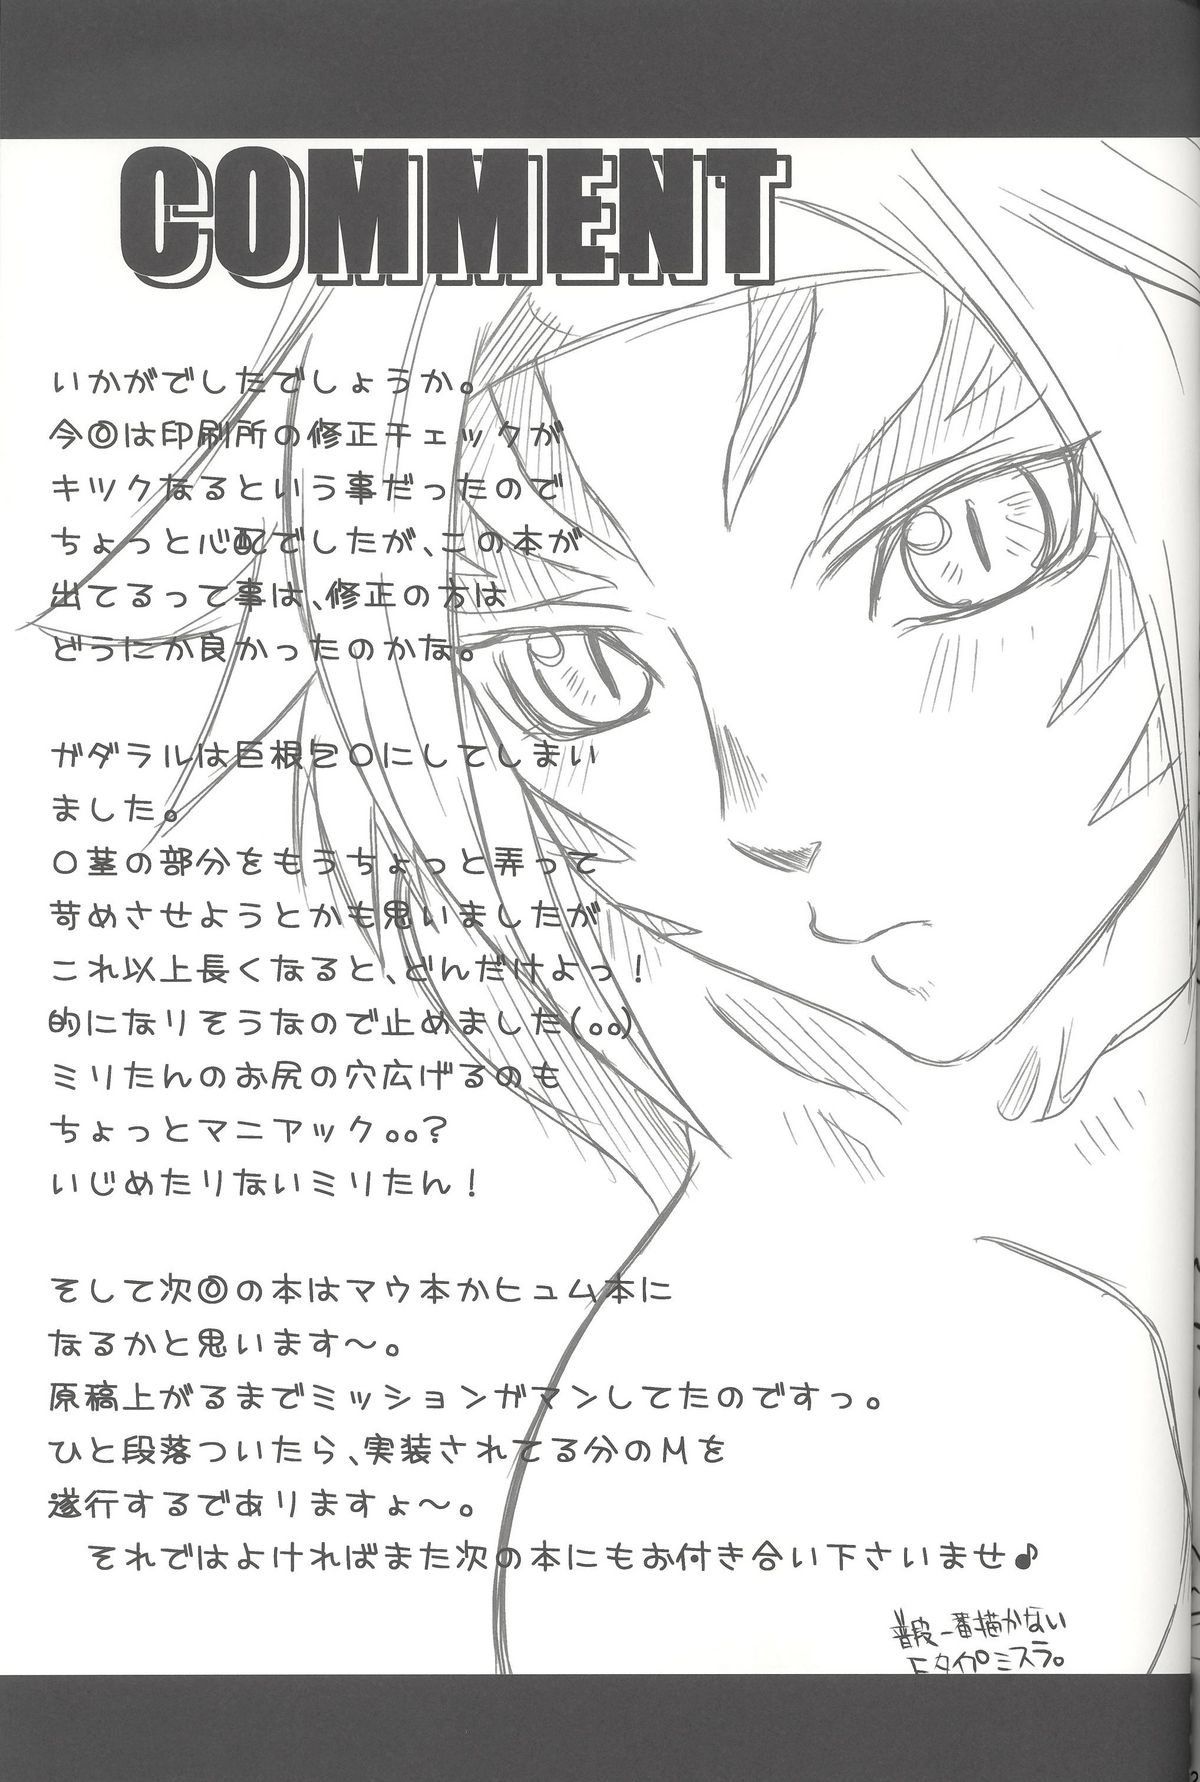 COMMENT
いかがでしたでしょうか。
今回は印刷所の修正チェックが
キツクなるという事だったので
ちょっと心配でしたが、この本が
出てるって事は、修正の方は
どうにか良かったのかな。
ガダラルは巨根包〇にしてしまい
ました。
〇茎の部分をもうちょっと弄って
苛めさせようとかも思いましたが
これ以上長くなると、どんだけよっ!
的になりそうなので止めました(。。)
ミリたんのお尻の穴広げるのも
ちょっとマニアック。。?
いじめたりないミリたん!
そして次回の本はマウ本かヒュム本に
なるかと思います〜。
原稿上がるまでミッションガマンしてたのですっ。
ひと段落ついたら、実装されてる分のMを
遂行するでありますょ〜。
それではよければまた次の本にもお付き合い下さいませ♪
普段一番描かない
Fタイプミスラ。